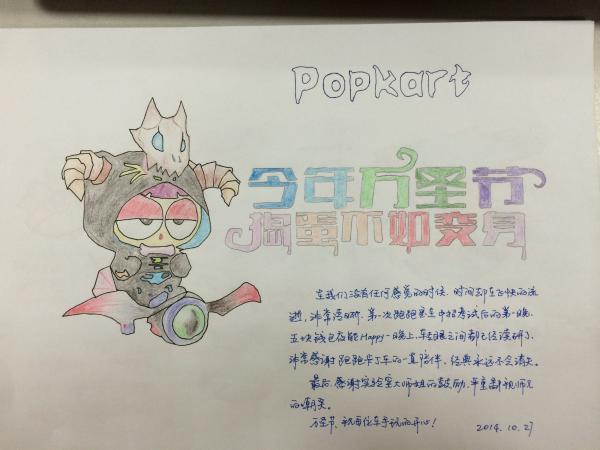 Popkart
今年万圣节
捣蛋不如变身
在我们没有任何感觉的时候，时间却在飞快的流
逝，非常清晰，第一次跑跑是在中招考试后的第一晚，
五块钱包夜能Happy一晚上，转眼之间都已经读研了，
非常感谢跑跑卡丁车的一直陪伴，经典永远不会消失。
最后感谢实验室大师姐的鼓励，并重鄙视师兄
的嘲笑。
万圣节，祝每位车手玩的开心！
2014.10.27